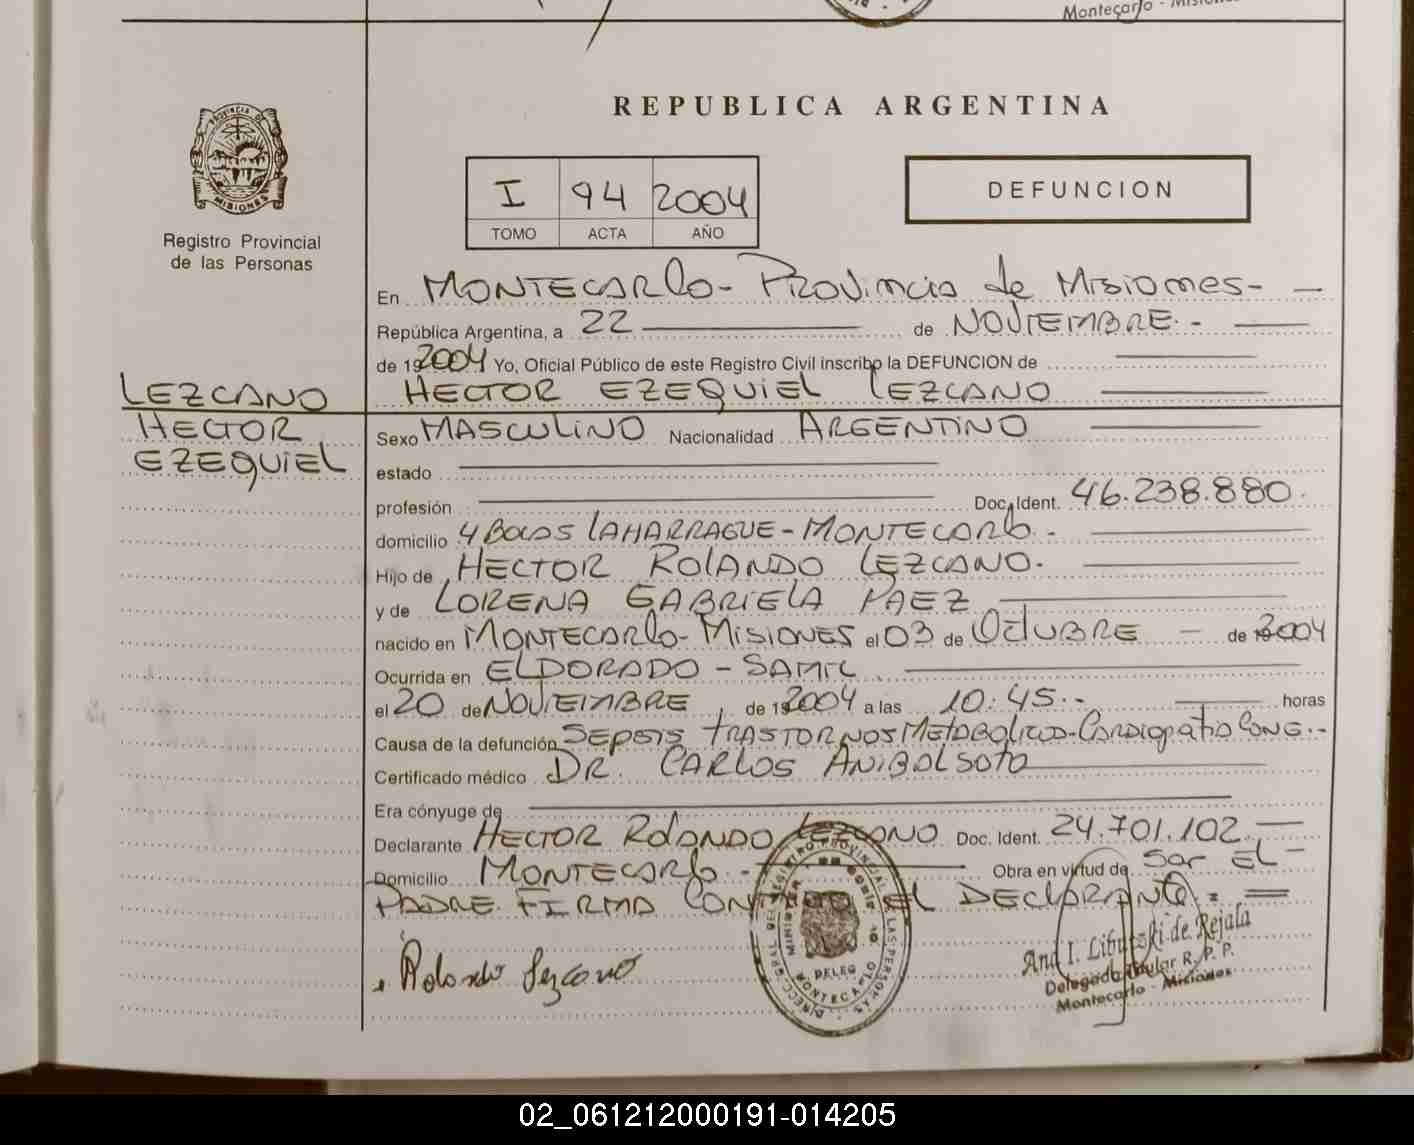 Montecarlo - Misiones
REPUBLICA ARGENTINA
PROVINCIA DE
MISIONES
Registro Provincial
de las Personas
I 94 2004
TOMO ACTA AÑO
DEFUNCION
En MONTECARLO - PROVINCIA de MISIONES -
República Argentina, a 22 de NOVIEMBRE -
de 192004 Yo, Oficial Público de este Registro Civil inscribo la DEFUNCION de
HECTOR EZEQUIEL LEZCANO
LEZCANO
HECTOR
EZEQUIEL
Sexo MASCULINO Nacionalidad ARGENTINO
estado
profesión Doc. Ident. 46.238.880.
domicilio 4 BOCAS LAHARRAGUE - MONTECARLO -
Hijo de HECTOR ROLANDO LEZCANO.
y de LORENA GABRIELA PAEZ
nacido en MONTECARLO - MISIONES el 03 de OCTUBRE - de 2004
Ocurrida en ELDORADO - SAMIC
el 20 de NOVIEMBRE de 192004 a las 10:45.- horas
Causa de la defunción SEPSIS TRASTORNOS METABOLICOS - CARDIOPATIA CONG.-
Certificado médico DR. CARLOS ANIBAL SOTO
Era cónyuge de
Declarante HECTOR ROLANDO LEZCANO Doc. Ident. 24.701.102
Domicilio MONTECARLO - Obra en virtud de SER EL -
PADRE FIRMA CONMIGO EL DECLARANTE =
Rolando Lezcano
DELEG
MONTECARLO
Ana I. Libutzki de Rejala
Delegada Titular R. P. P.
Montecarlo - Misiones
02_061212000191-014205